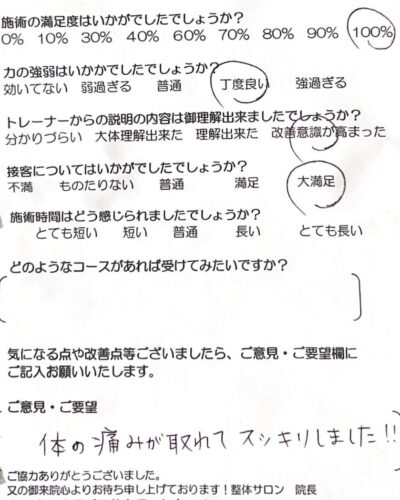 施術の満足度はいかがでしたでしょうか？
0% 10% 30% 40% 60% 70% 80% 90% 100%
力の強弱はいかかでしたでしょうか？
効いてない 弱過ぎる 普通 丁度良い 強過ぎる
トレーナーからの説明の内容は御理解出来ましたでしょうか？
分かりづらい 大体理解出来た 理解出来た 改善意識が高まった
接客についてはいかがでしたでしょうか？
不満 ものたりない 普通 満足 大満足
施術時間はどう感じられましたでしょうか？
とても短い 短い 普通 長い とても長い
どのようなコースがあれば受けてみたいですか？
気になる点や改善点等ございましたら、ご意見・ご要望欄に
ご記入お願いいたします。
ご意見・ご要望
体の痛みが取れてスッキリしました!!
ご協力ありがとうございました。
又の御来院心よりお待ち申し上げております！整体サロン 院長